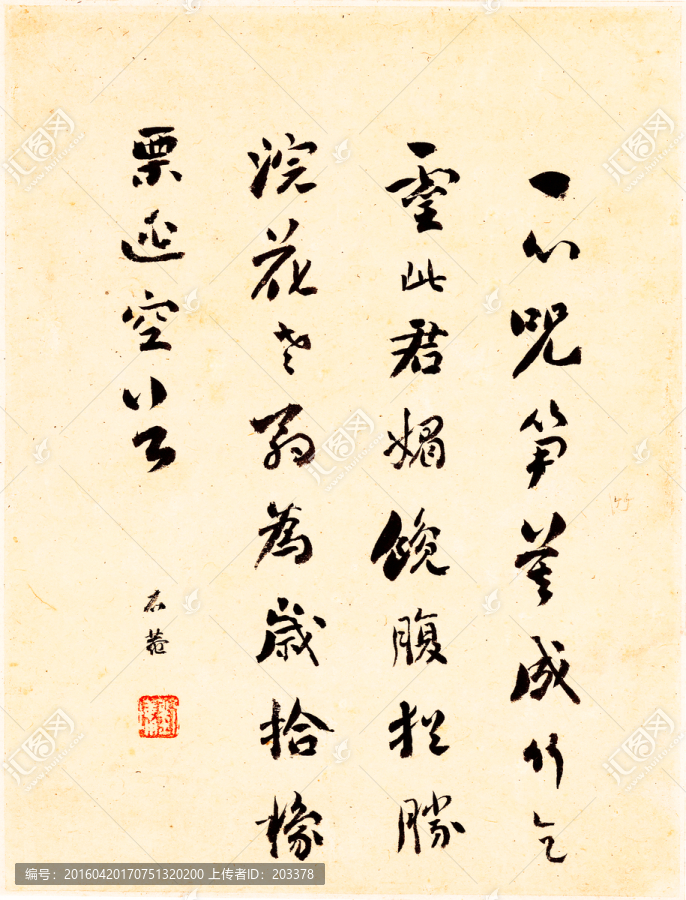 一心咒筍莫成竹乞
靈此君媚饞腹猶勝
浣花老翁為歲拾橡
栗空谷
石菴
汇图网
www.huitu.com
编号：20160420170751320200 上传者ID：203378